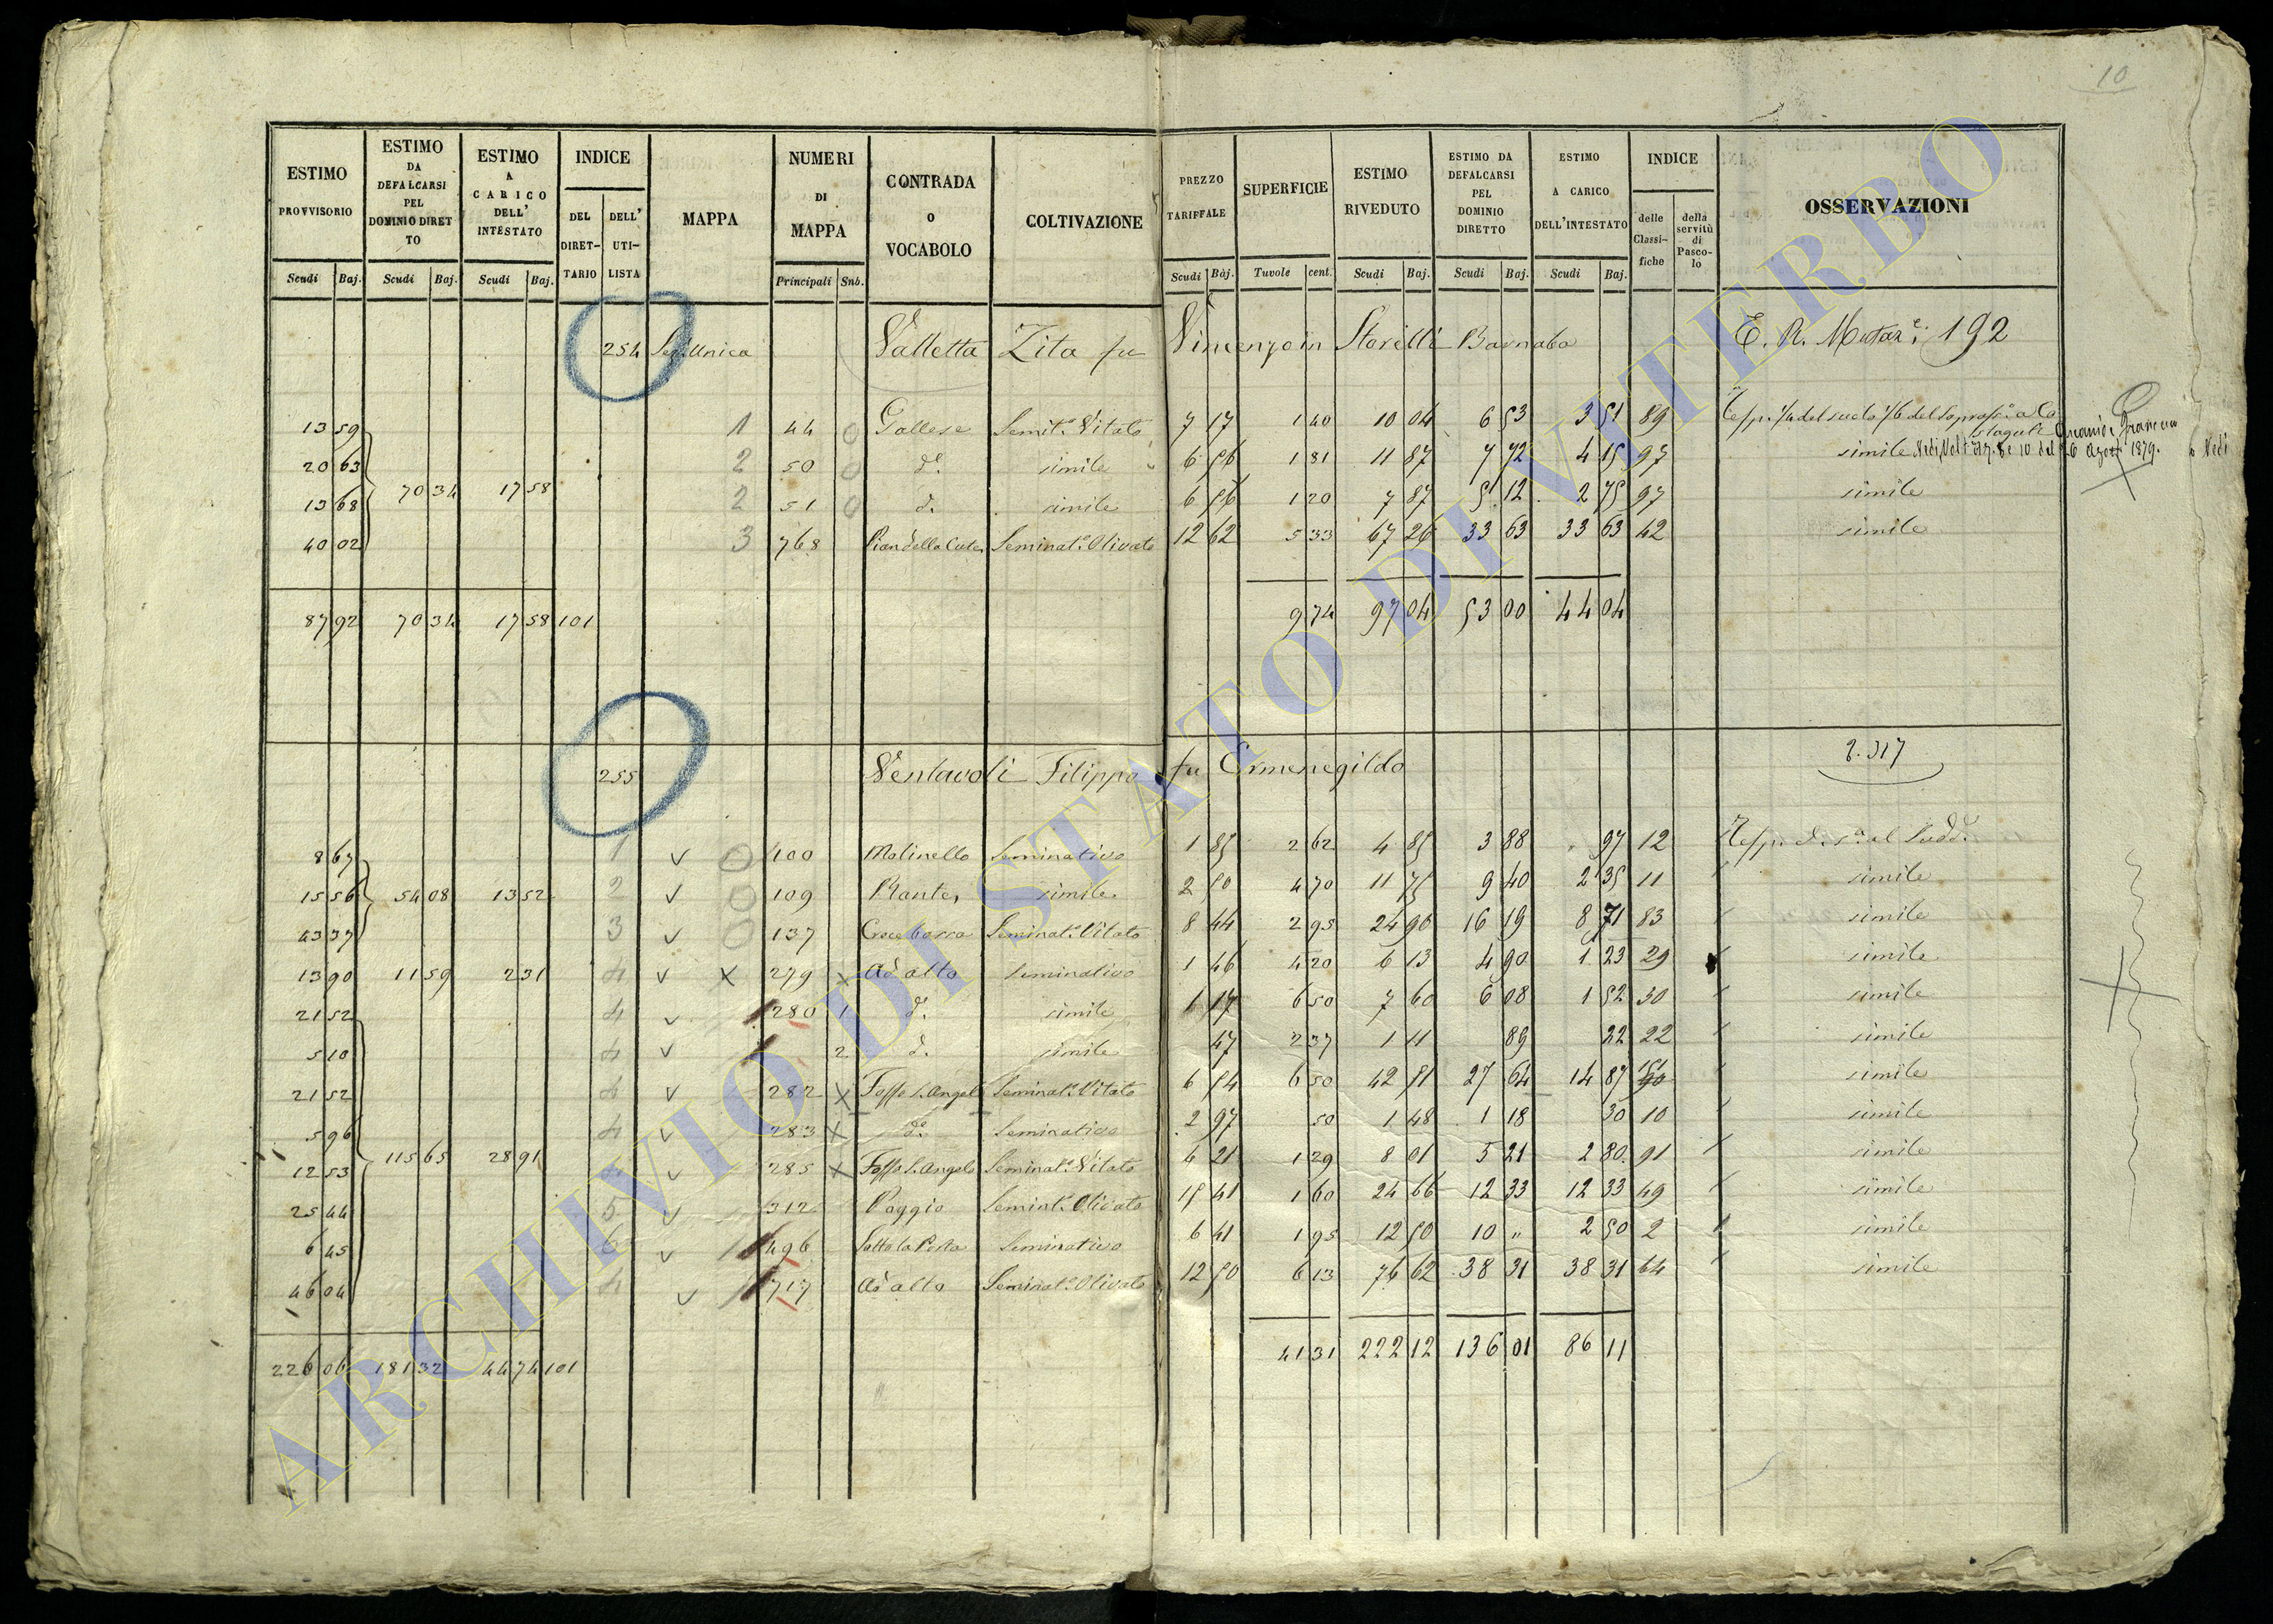 10
ESTIMO PROVVISORIO | ESTIMO DA DEFALCARSI PEL DOMINIO DIRETTO | ESTIMO A CARICO DELL' INTESTATO | INDICE | MAPPA | NUMERI DI MAPPA | CONTRADA O VOCABOLO | COLTIVAZIONE | PREZZO TARIFFALE | SUPERFICIE | ESTIMO RIVEDUTO | ESTIMO DA DEFALCARSI PEL DOMINIO DIRETTO | ESTIMO A CARICO DELL'INTESTATO | INDICE | OSSERVAZIONI
DEL DIRETTARIO | DELL' UTILISTA | delle Classifiche | della servitù di Pascolo
Scudi | Baj. | Scudi | Baj. | Scudi | Baj. | Principali | Snb. | Scudi | Baj. | Tuvole | cent. | Scudi | Baj. | Scudi | Baj. | Scudi | Baj.
254 Sez. Unica Valletta Zita fu Vincenzo in Storelli Barnaba E. R. Mutaz.e: 192
13 59 1 44 0 Gallese Semit.o Vitato 7 17 1 40 10 04 6 53 3 51 89 1/4 del suolo 1/6 del
20 63 2 50 0 d.o simile 6 56 1 81 11 87 7 72 4 15 97 simile
70 34 17 58
13 68 2 51 0 d. simile 6 56 1 20 7 87 5 12 2 75 97 simile
40 02 3 768 Seminat.o Olivato 12 62 5 33 67 26 33 63 33 63 42 simile
87 92 70 34 17 58 101 9 74 97 04 53 00 44 04
255 Ventavoli Filippo fu Ermenegildo 2.317
8 67 1 100 Molinello Seminativo 1 85 2 62 4 85 3 88 97 12
15 56 54 08 13 52 2 109 simile 2 50 4 70 11 75 9 40 2 35 11 simile
43 37 3 137 Seminat.o Vitato 8 44 2 95 24 90 16 19 8 71 83 simile
13 90 11 59 2 31 4 279 x Ad alto Seminativo 1 46 4 20 6 13 4 90 1 23 29 simile
21 52 4 280 1 d. simile 1 17 6 50 7 60 6 08 1 52 30 simile
5 10 4 2 d. simile 47 2 37 1 11 89 22 22 simile
21 52 4 282 x Fosso S. Angelo Seminat.o Vitato 6 54 6 50 42 51 27 64 14 87 simile
5 96 4 283 x d.o Seminativo 2 97 50 1 48 1 18 30 10 simile
115 65 28 91
12 53 285 x Fosso S. Angelo Seminat.o Vitato 6 21 1 29 8 01 5 21 2 80 91 simile
25 44 5 312 Poggio Semint.o Olivato 15 41 1 60 24 66 12 33 12 33 49 simile
6 45 6 496 Sotto la Porta Seminativo 6 41 1 95 12 50 10 " 2 50 2 simile
46 04 4 717 Ad alto Seminat.o Olivato 12 50 6 13 76 62 38 31 38 31 64 simile
226 06 181 32 44 74 101 41 31 222 12 136 01 86 11
ARCHIVIO DI STATO DI VITERBO